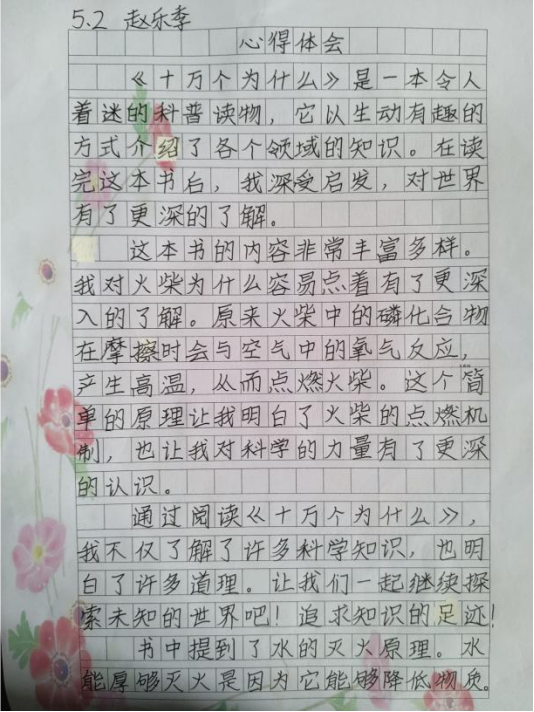 5.2 赵乐季
心得体会
《十万个为什么》是一本令人
着迷的科普读物，它以生动有趣的
方式介绍了各个领域的知识。在读
完这本书后，我深受启发，对世界
有了更深的了解。
这本书的内容非常丰富多样。
我对火柴为什么容易点着有了更深
入的了解。原来火柴中的磷化合物
在摩擦时会与空气中的氧气反应，
产生高温，从而点燃火柴。这个简
单的原理让我明白了火柴的点燃机
制，也让我对科学的力量有了更深
的认识。
通过阅读《十万个为什么》，
我不仅了解了许多科学知识，也明
白了许多道理。让我们一起继续探
索未知的世界吧！追求知识的足迹！
书中提到了水的灭火原理。水
能厚够灭火是因为它能够降低物质。